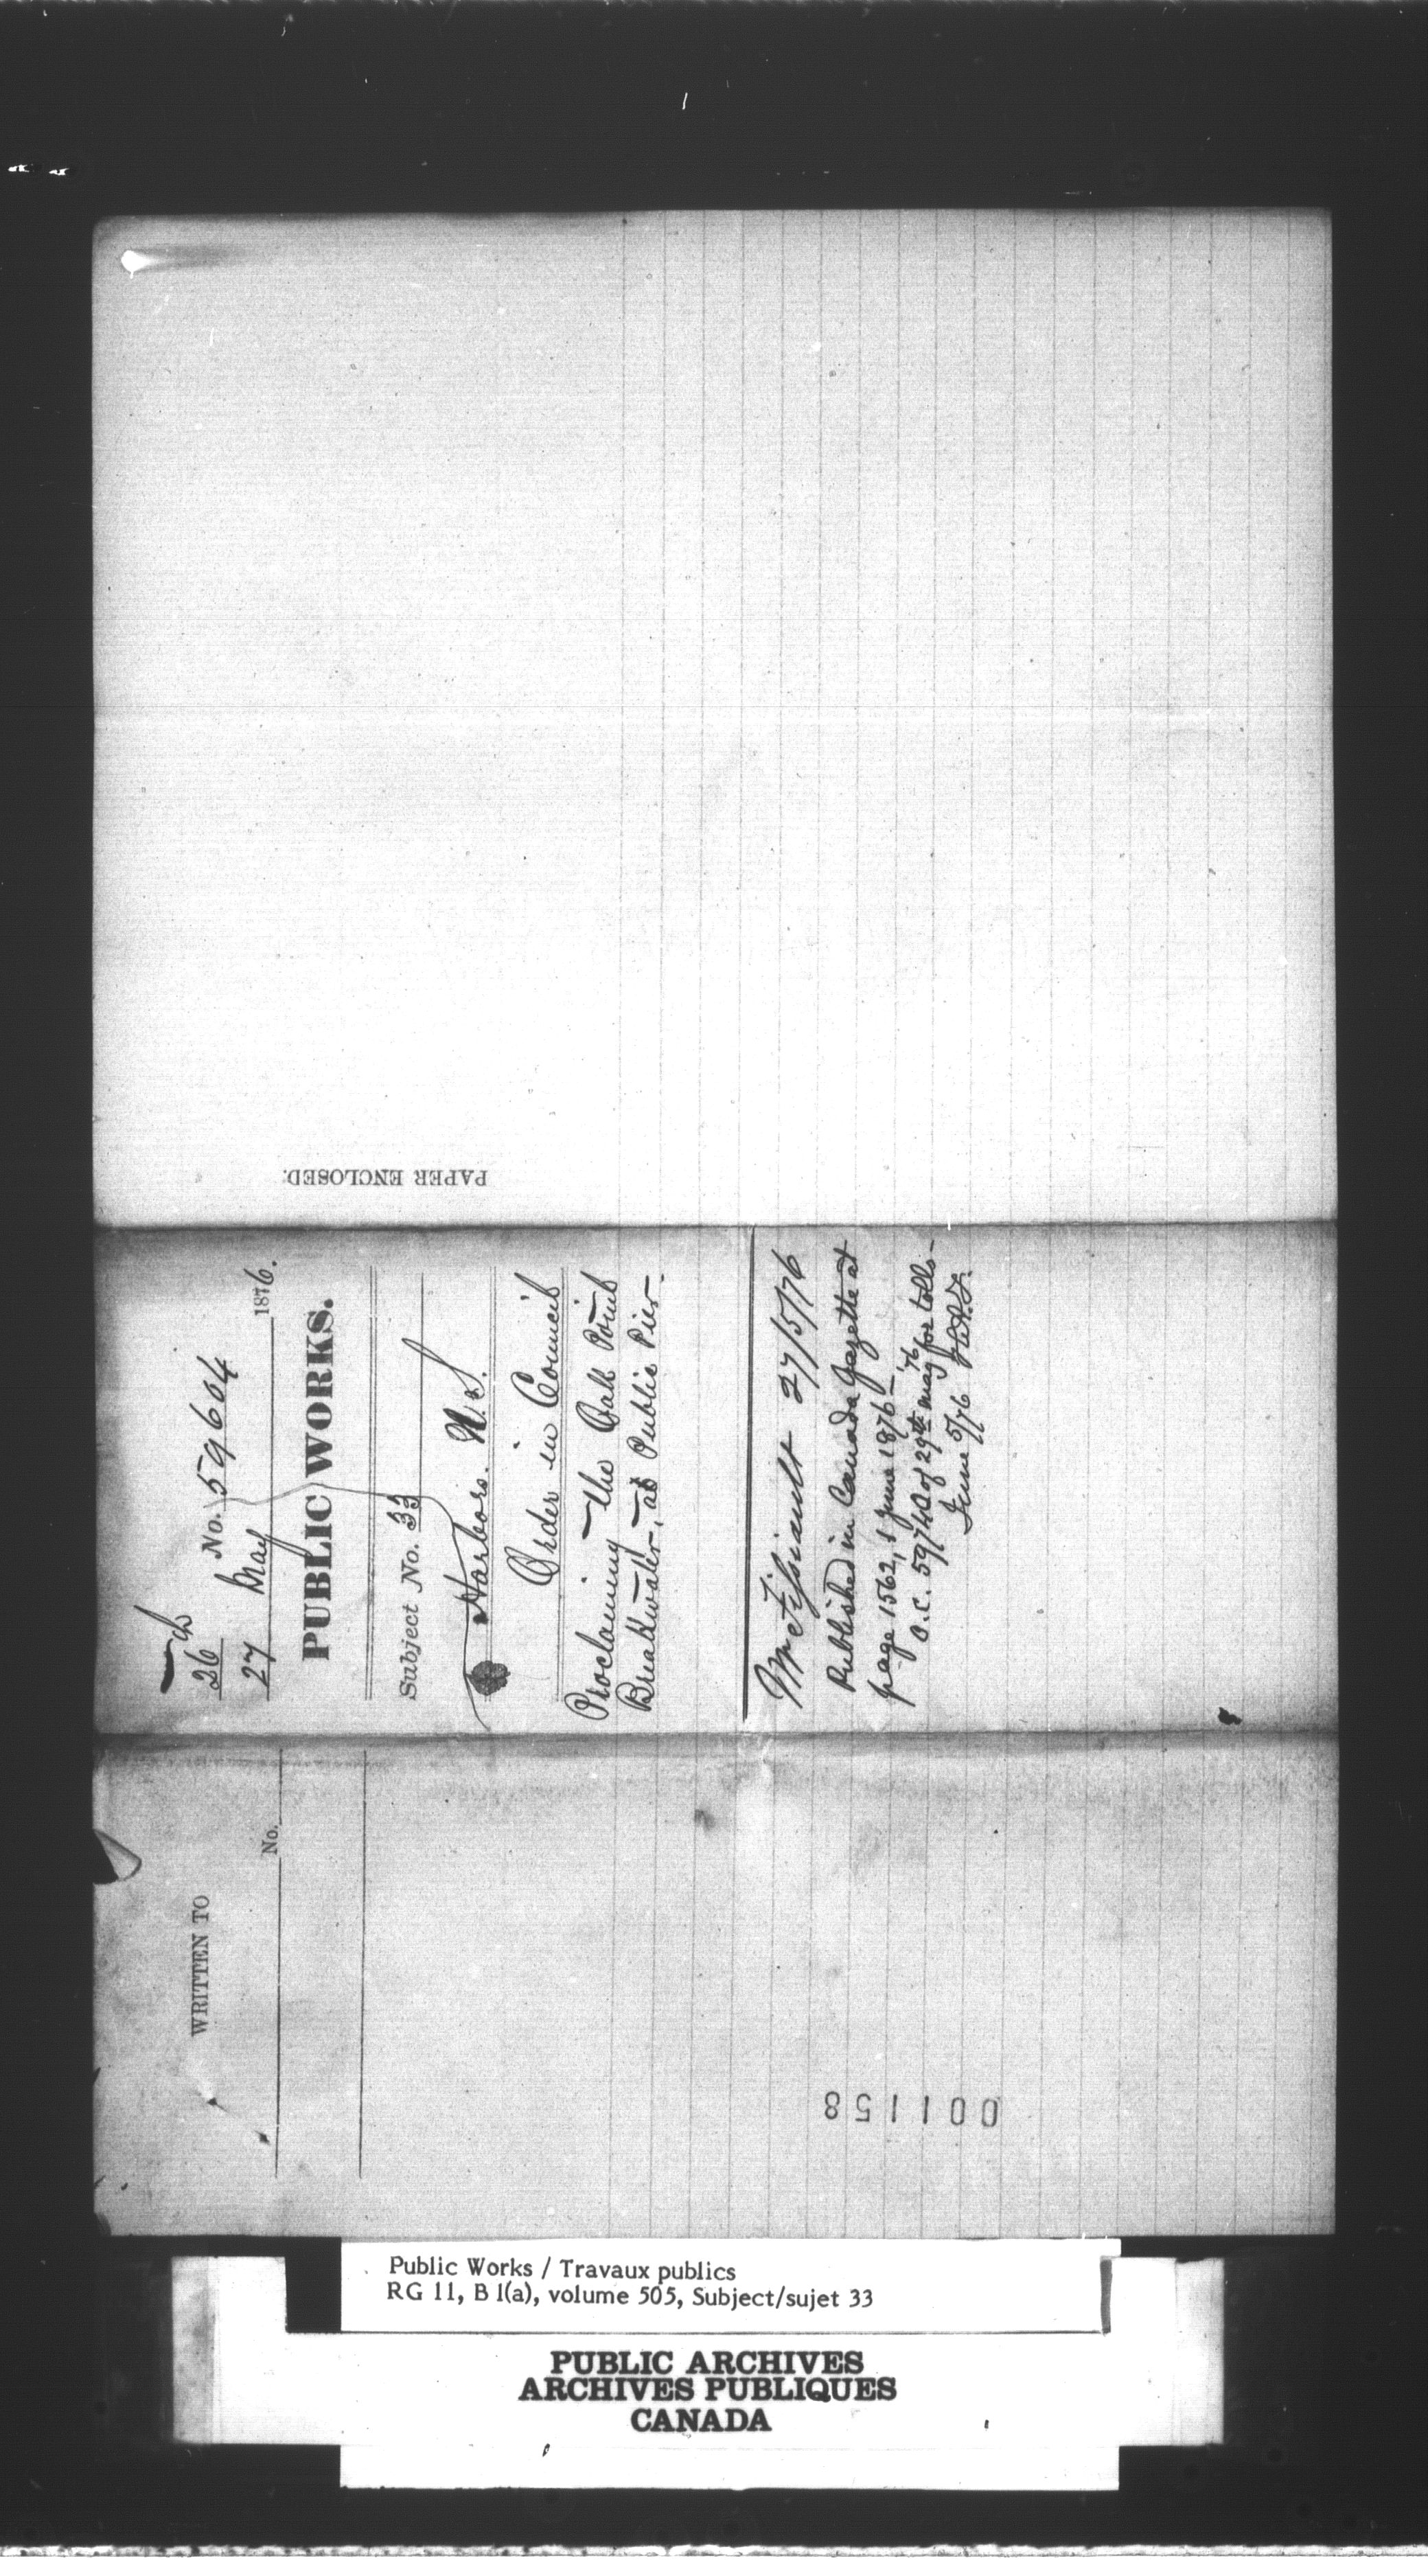 PAPER ENCLOSED.
26
No. 59604
27 May 1876.
PUBLIC WORKS.
Subject No. 33
Harbors. N.S.
Order in Council
Proclaiming the Oak Point
Breakwater, as Public Pier
27/5/76
Published in Canada Gazette at
page 1562, 1 June 1876
O.C. 59740 of 29th May '76 for tolls
June 5/76
WRITTEN TO
No.
001158
Public Works / Travaux publics
RG 11, B 1(a), volume 505, Subject/sujet 33
PUBLIC ARCHIVES
ARCHIVES PUBLIQUES
CANADA